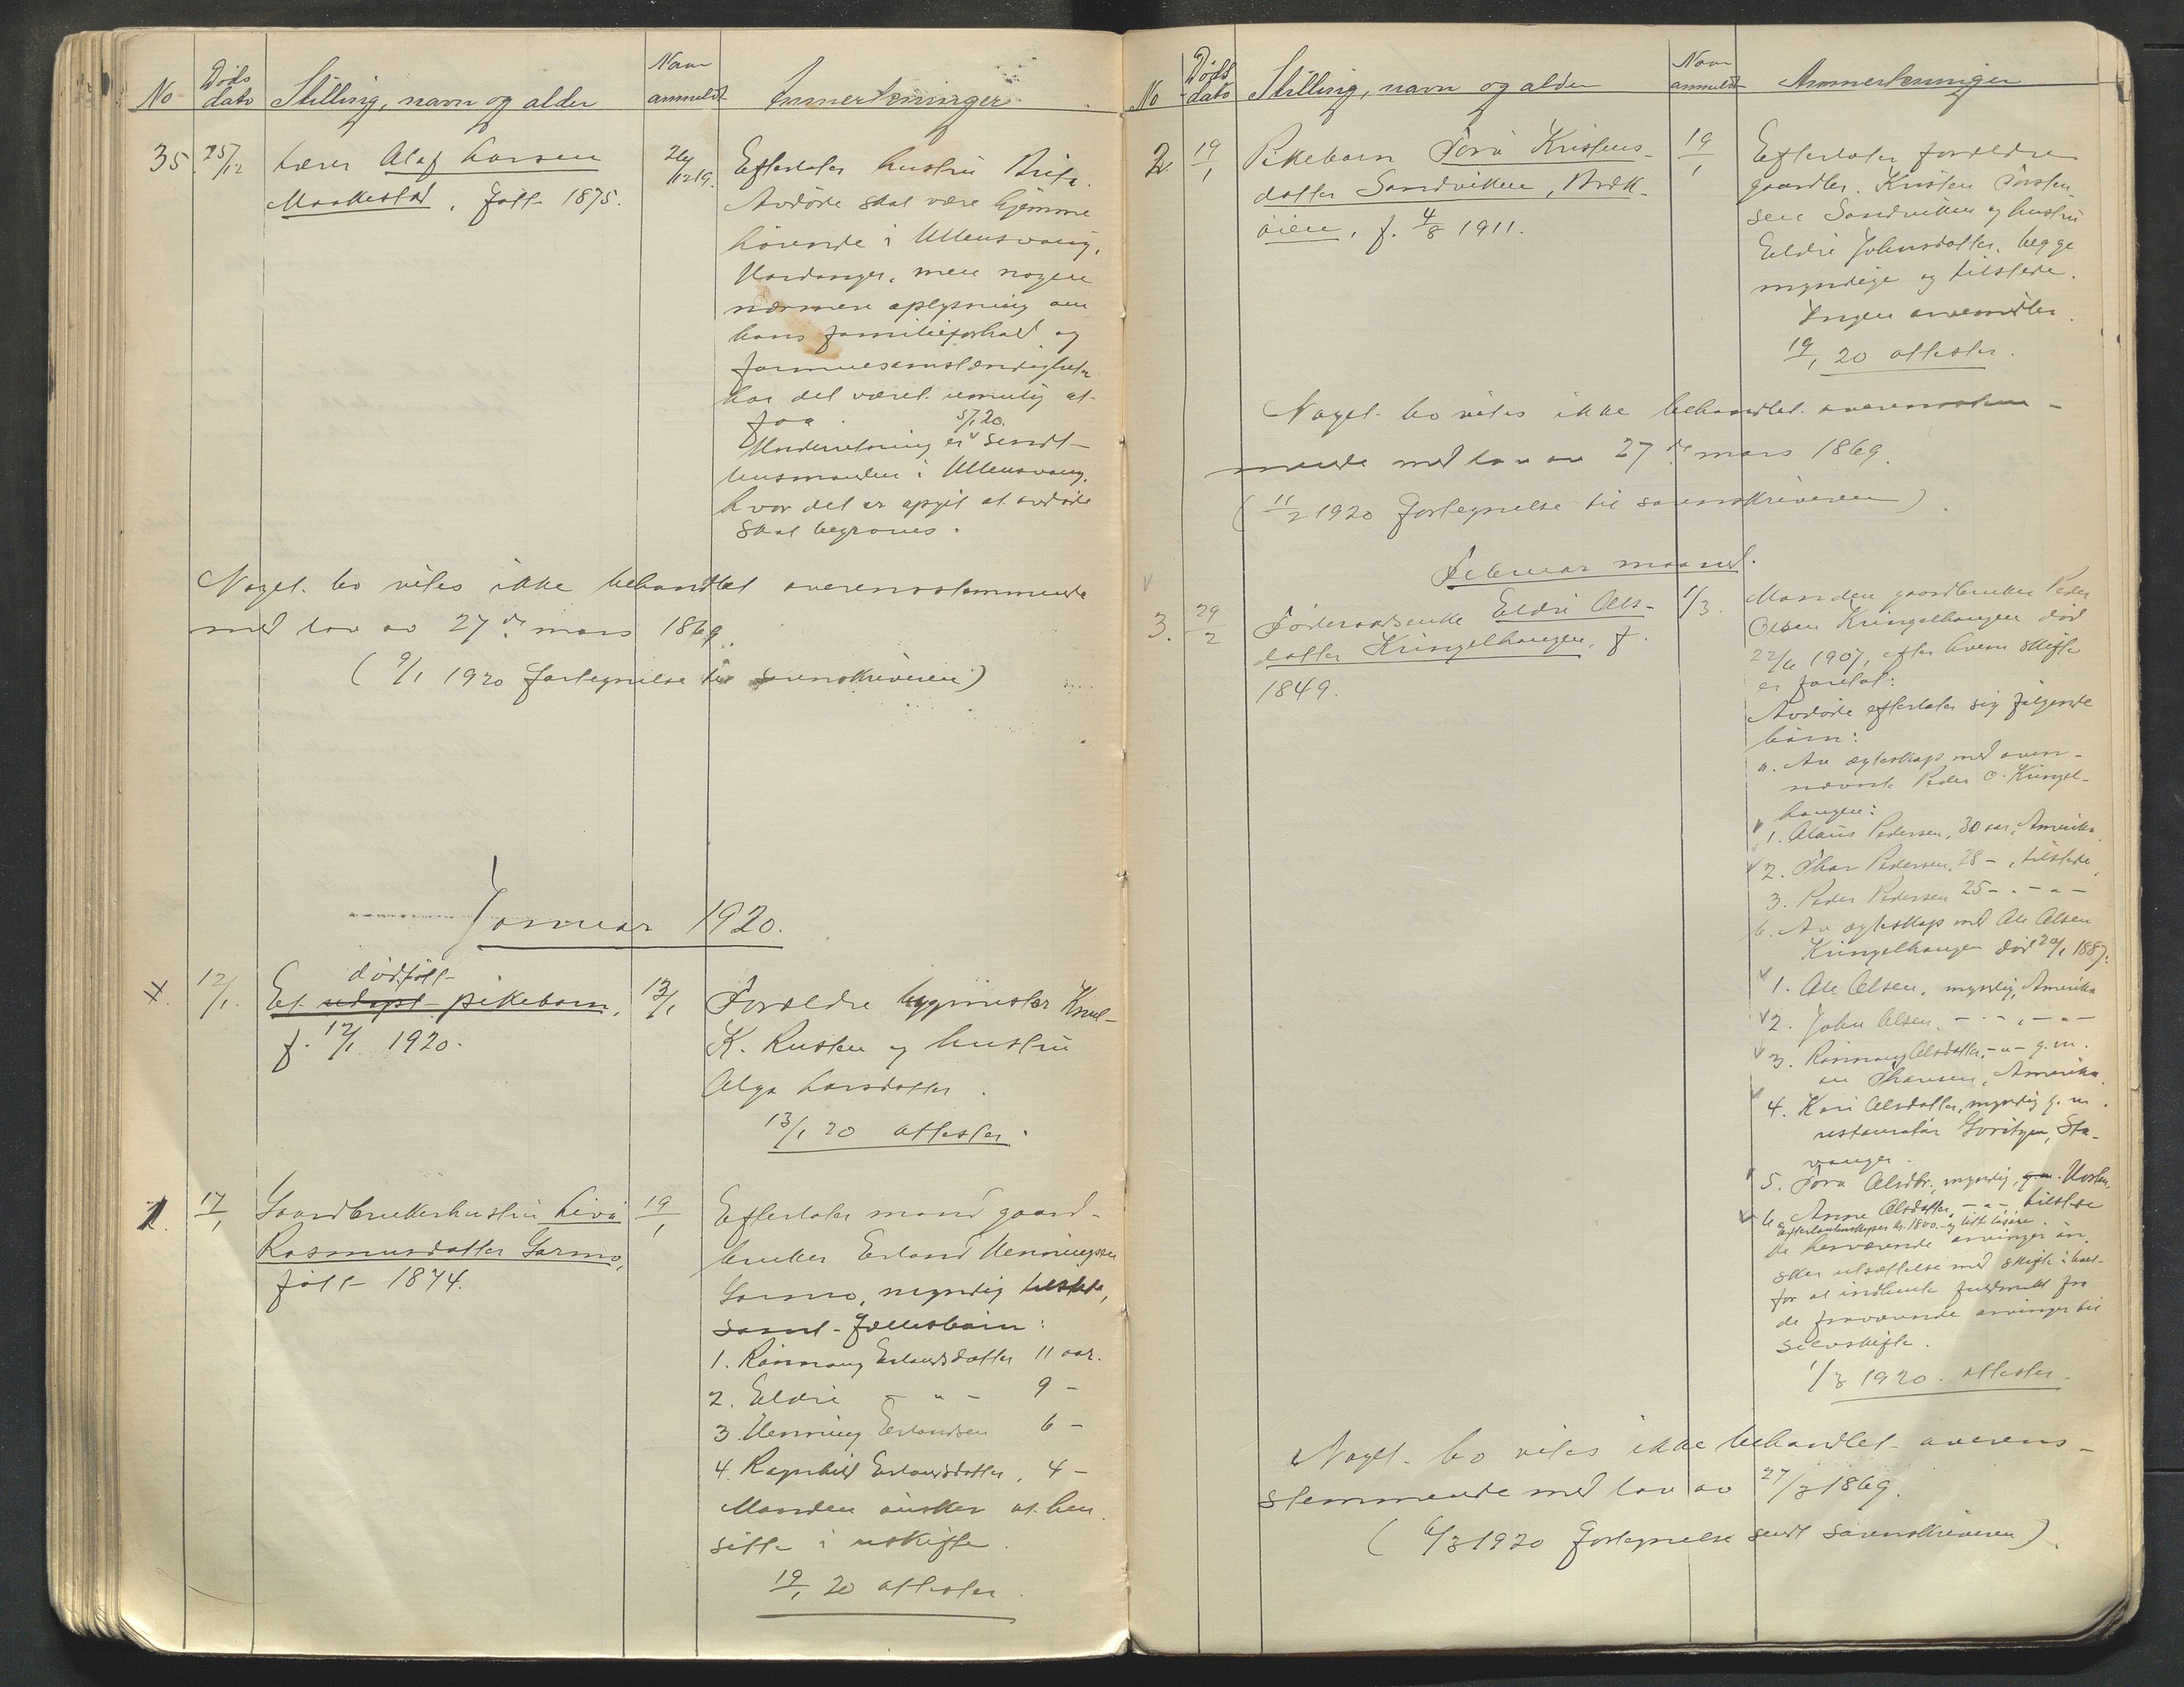 No
Døds
dato
Stilling, navn og alder
Naar
anmeldt
Anmerkninger
35.
25/12
Lærer Olaf Larsen
Maakestad, født 1875.
26/12 19.
Efterlater hustru Brita.
Avdøde skal være hjemme
hørende i Ullensvang,
Hardanger, men nogen
nærmere oplysning om
hans familieforhold og
formuesomstændigheter
har det været umulig at
faa. 5/1 20.
Underretning er sendt
lensmanden i Ullensvang,
hvor det er opgit at avdøde
skal begraves.
Noget bo vites ikke behandlet overensstemmende
med lov av 27de mars 1869.
(9/1 1920 fortegnelse til sorenskriveren)
Januar 1920.
12/1.
dødfødt
Et udøpt pikebarn,
f. 12/1 1920.
13/1
Forældre bygmester Knut
K. Rusten og hustru
Olga Larsdatter.
13/1 20 attester.
1.
17/1
Gaardbrukerhustru Livø
Rasmusdatter Garmo,
født 1874.
19/1
Efterlater mand gaard-
bruker Erland Henningsen
Garmo, myndig tilstede,
samt fællesbørn:
1. Rønnaug Erlandsdatter 11 aar.
2. Eldri - " - 9 -
3. Henning Erlandsen 6 -
4. Ragnhild Erlandsdatter, 4 -
Manden ønsker at hen
sitte i uskifte.
19/1 20 attester.
No
Døds
dato
Stilling, navn og alder
Naar
anmeldt
Anmerkninger
2.
19/1
Pikebarn Tora Kristens-
datter Sandviken, Bræk-
øien, f. 4/8 1911.
19/1
Efterlater forældre
gaardbr. Kristen Torsten
sen Sandviken og hustru
Eldri Johnsdatter, begge
myndige og tilstede.
Ingen arvemidler.
19/1 20 attester.
Noget bo vites ikke behandlet overensstem-
mende med lov av 27de mars 1869.
(11/2 1920 fortegnelse til sorenskriveren).
Februar maaned.
3.
29/2
Føderaadsenke Eldri Ols-
datter Kringelhaugen, f.
1849.
1/3.
Manden gaardbruker Peder
Olsen Kringelhaugen død
22/6 1907, efter hvem skifte
er foretat:
Avdøde efterlater sig følgende
børn:
a. Av egteskap med oven-
nævnte Peder O. Kringel-
haugen:
1. Olaus Pedersen, 30 aar, Amerika.
2. Thor Pedersen, 28 -, tilstede.
3. Peder Pedersen 25 - . - " -
b. Av egteskap med Ole Olsen
Kringelhaugen død 20/1 1887:
1. Ole Olsen, myndig, Amerika
2. John Olsen, - " -, - " -
3. Rønnaug Olsdatter, - " - g. m.
en Thoresen, Amerika.
4. Kari Olsdatter, myndig g. m.
restauratør Goritzen, Sta-
vanger.
5. Tora Olsdtr., myndig, g.m.
6. Anne Olsdatter, - " - tilstede
Efterlatenskaper kr. 1800.- og litt løsøre.
De herværende arvinger øn-
sker utsættelse med skifte i boet
for at indhente fuldmakt fra
de fraværende arvinger til
selvskifte.
1/3 1920. attester.
Noget bo vites ikke behandlet overens-
stemmende med lov av 27/3 1869.
(6/3 1920 fortegnelse sendt sorenskriveren).